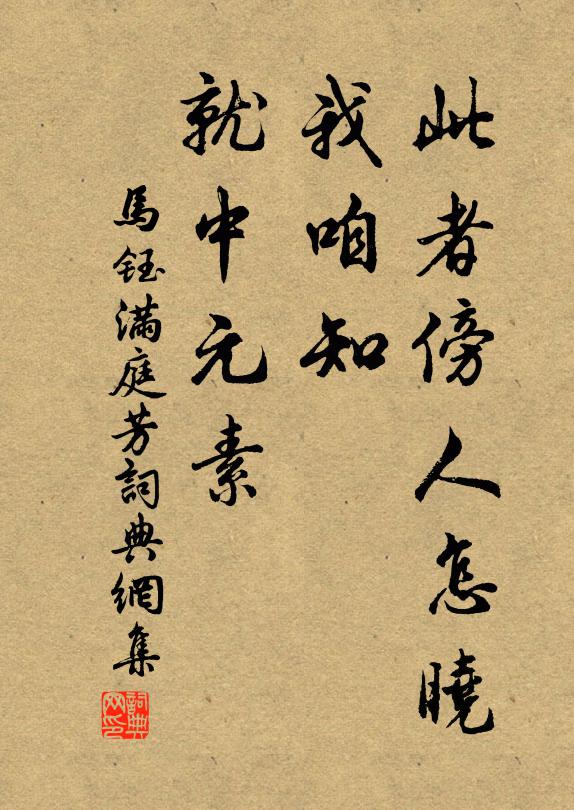 此者傍人怎曉
我咱知
就中元素
馬鈺滿庭芳詞典網集
詞典网印